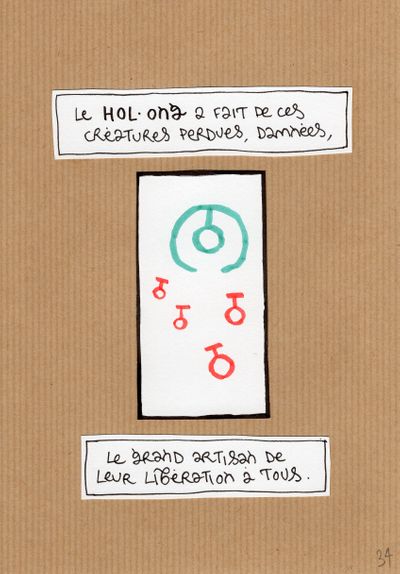 Le HOL·ong a fait de ces
créatures perdues, damnées,
Le grand artisan de
leur libération à tous.
34